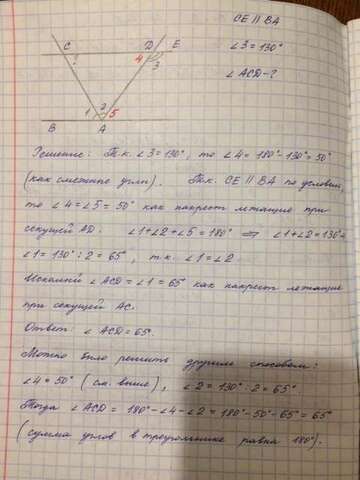 CE || BA
C D E
∠3 = 130°
?
4 3
∠ACD - ?
1 2 5
B A
Решение: Т.к. ∠3 = 130°, то ∠4 = 180° - 130° = 50°
(как смежные углы). Т.к. CE || BA по условию,
то ∠4 = ∠5 = 50° как накрест лежащие при
секущей AD. ∠1 + ∠2 + ∠5 = 180° ⇒ ∠1 + ∠2 = 130°
∠1 = 130° : 2 = 65°, т.к. ∠1 = ∠2
Искомый ∠ACD = ∠1 = 65° как накрест лежащие
при секущей AC.
Ответ: ∠ACD = 65°.
Можно было решить другим способом:
∠4 = 50° (см. выше), ∠2 = 130° : 2 = 65°
Тогда ∠ACD = 180° - ∠4 - ∠2 = 180° - 50° - 65° = 65°
(сумма углов в треугольнике равна 180°).